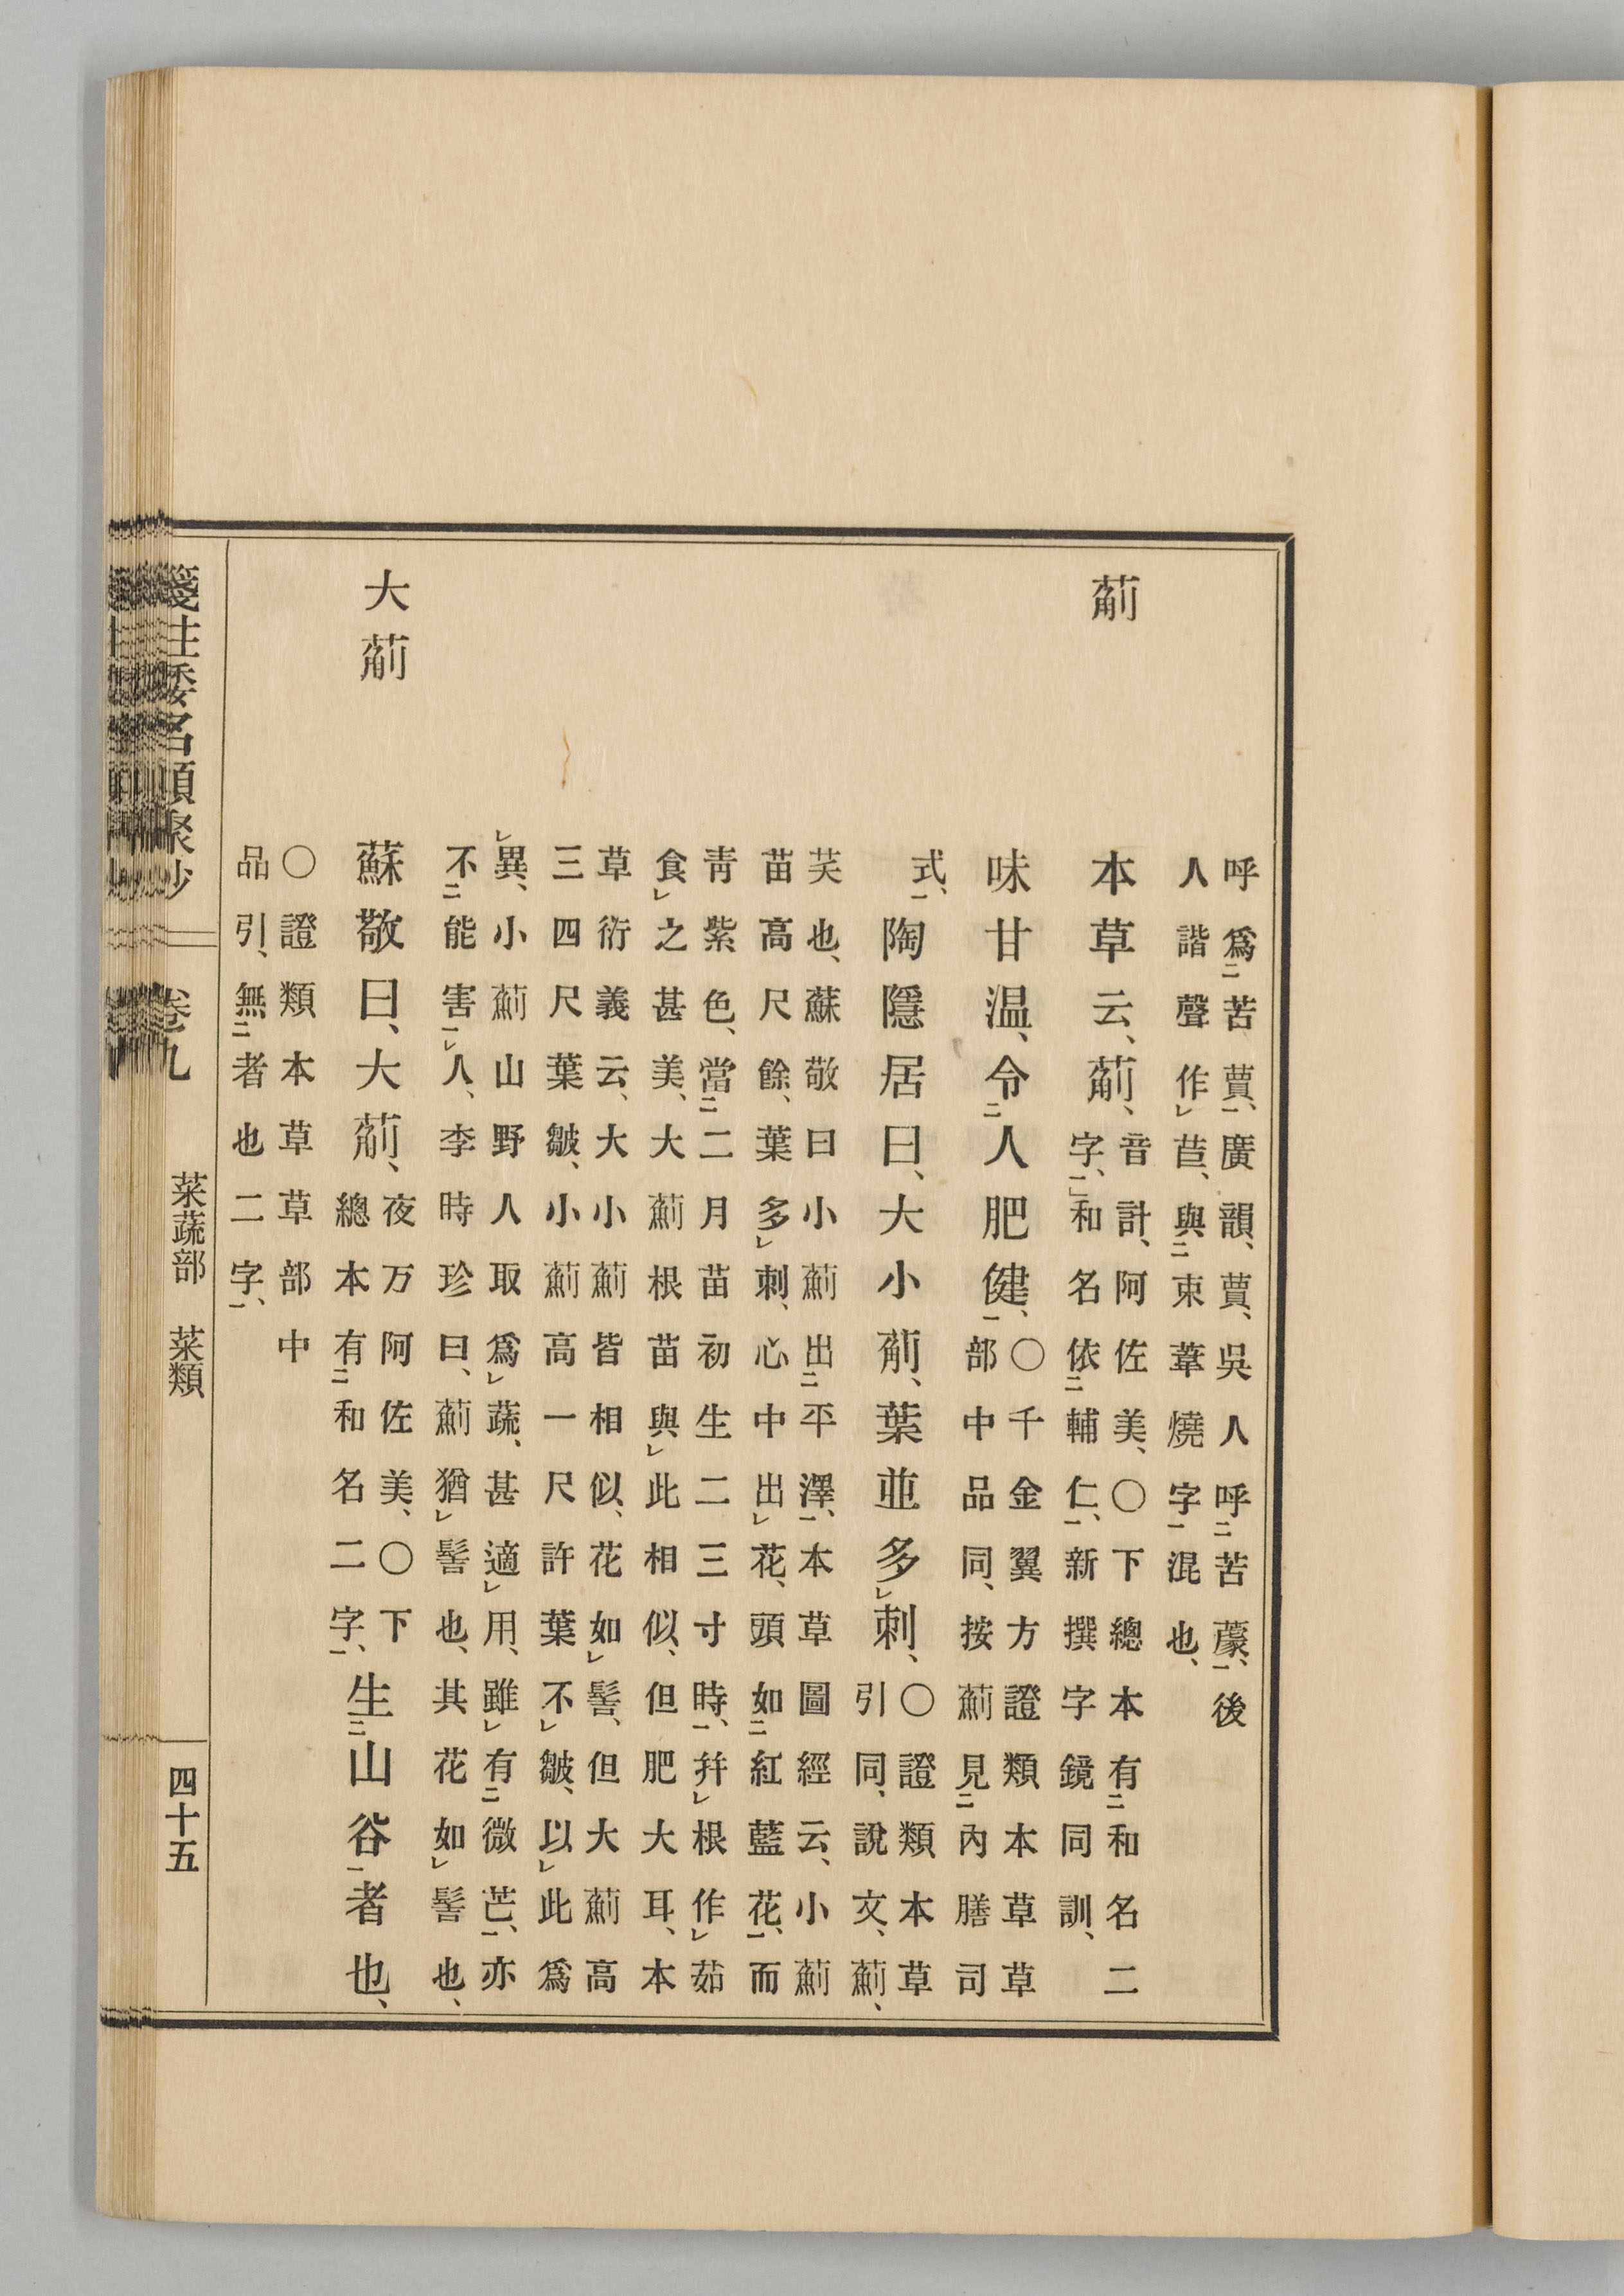 葪
呼爲苦蕒、廣韻、蕒、吳人呼苦、後
人諧聲作苣、與束葦燒字混也、
本草云、葪、
音計、阿佐美、〇下總本有和名二
字、和名依輔仁、新撰字鏡同訓、
味甘温、令人肥健、
〇千金翼方證類本草草
部中品同、按薊見內膳司
式、
陶隱居曰、大小葪、葉並多刺、
〇證類本草草
引同、說文、薊、
芺也、蘇敬曰小薊出平澤、本草圖經云、小薊
苗高尺餘、葉多刺、心中出花、頭如紅藍花、而
靑紫色、當二月苗初生二三寸時、幷根作茹
食之甚美、大薊根苗與此相似、但肥大耳、本
草衍義云、大小薊皆相似、花如髻、但大薊高
三四尺葉皺、小薊高一尺許葉不皺、以此爲
異、小薊山野人取爲蔬、甚適用、雖有微芒、亦
不能害人、李時珍曰、薊猶髻也、其花如髻也、
大葪
蘇敬曰、大葪、
夜万阿佐美、〇下
總本有和名二字、
生山谷者也、
〇證類本草草部中
品引、無者也二字、
箋注倭名類聚抄 卷九 菜蔬部 菜類 四十五